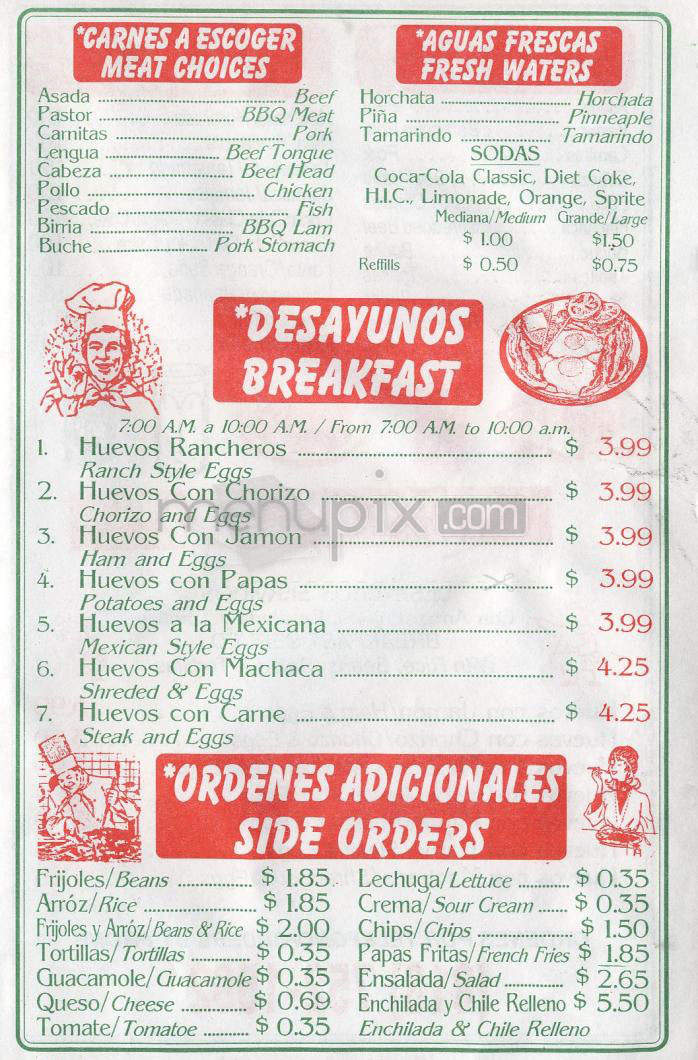 *CARNES A ESCOGER
MEAT CHOICES
Asada ........ Beef
Pastor ........ BBQ Meat
Carnitas ........ Pork
Lengua ........ Beef Tongue
Cabeza ........ Beef Head
Pollo ........ Chicken
Pescado ........ Fish
Birria ........ BBQ Lam
Buche ........ Pork Stomach
*AGUAS FRESCAS
FRESH WATERS
Horchata ........ Horchata
Piña ........ Pinneaple
Tamarindo ........ Tamarindo
SODAS
Coca-Cola Classic, Diet Coke,
H.I.C., Limonade, Orange, Sprite
Mediana/Medium Grande/Large
$ 1.00 $1.50
Reffills $ 0.50 $0.75
*DESAYUNOS
BREAKFAST
7:00 A.M. a 10:00 A.M. / From 7:00 A.M. to 10:00 a.m.
1. Huevos Rancheros ........ $ 3.99
Ranch Style Eggs
2. Huevos Con Chorizo ........ $ 3.99
Chorizo and Eggs
menupix.com
3. Huevos Con Jamon ........ $ 3.99
Ham and Eggs
4. Huevos con Papas ........ $ 3.99
Potatoes and Eggs
5. Huevos a la Mexicana ........ $ 3.99
Mexican Style Eggs
6. Huevos Con Machaca ........ $ 4.25
Shreded & Eggs
7. Huevos con Carne ........ $ 4.25
Steak and Eggs
*ORDENES ADICIONALES
SIDE ORDERS
Frijoles/Beans ........ $ 1.85
Arróz/Rice ........ $ 1.85
Frijoles y Arróz/Beans & Rice $ 2.00
Tortillas/Tortillas ........ $ 0.35
Guacamole/Guacamole $ 0.35
Queso/Cheese ........ $ 0.69
Tomate/Tomatoe ........ $ 0.35
Lechuga/Lettuce ........ $ 0.35
Crema/Sour Cream ........ $ 0.35
Chips/Chips ........ $ 1.50
Papas Fritas/French Fries $ 1.85
Ensalada/Salad ........ $ 2.65
Enchilada y Chile Relleno $ 5.50
Enchilada & Chile Relleno